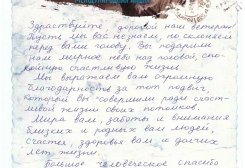 Здравствуйте, дорогой наш ветеран!
Пусть мы вас не знаем, но склоняем
перед вами голову, вы подарили
нам мирное небо над головой, спо-
койную счастливую жизнь.
Мы выражаем вам огромную
благодарность за тот подвиг,
который вы совершили ради счаст-
ливой жизни своих потомков.
Мира вам, заботы и внимания
близких и родных вам людей,
счастья, здоровья вам и долгих
лет жизни.
Большое человеческое спасибо